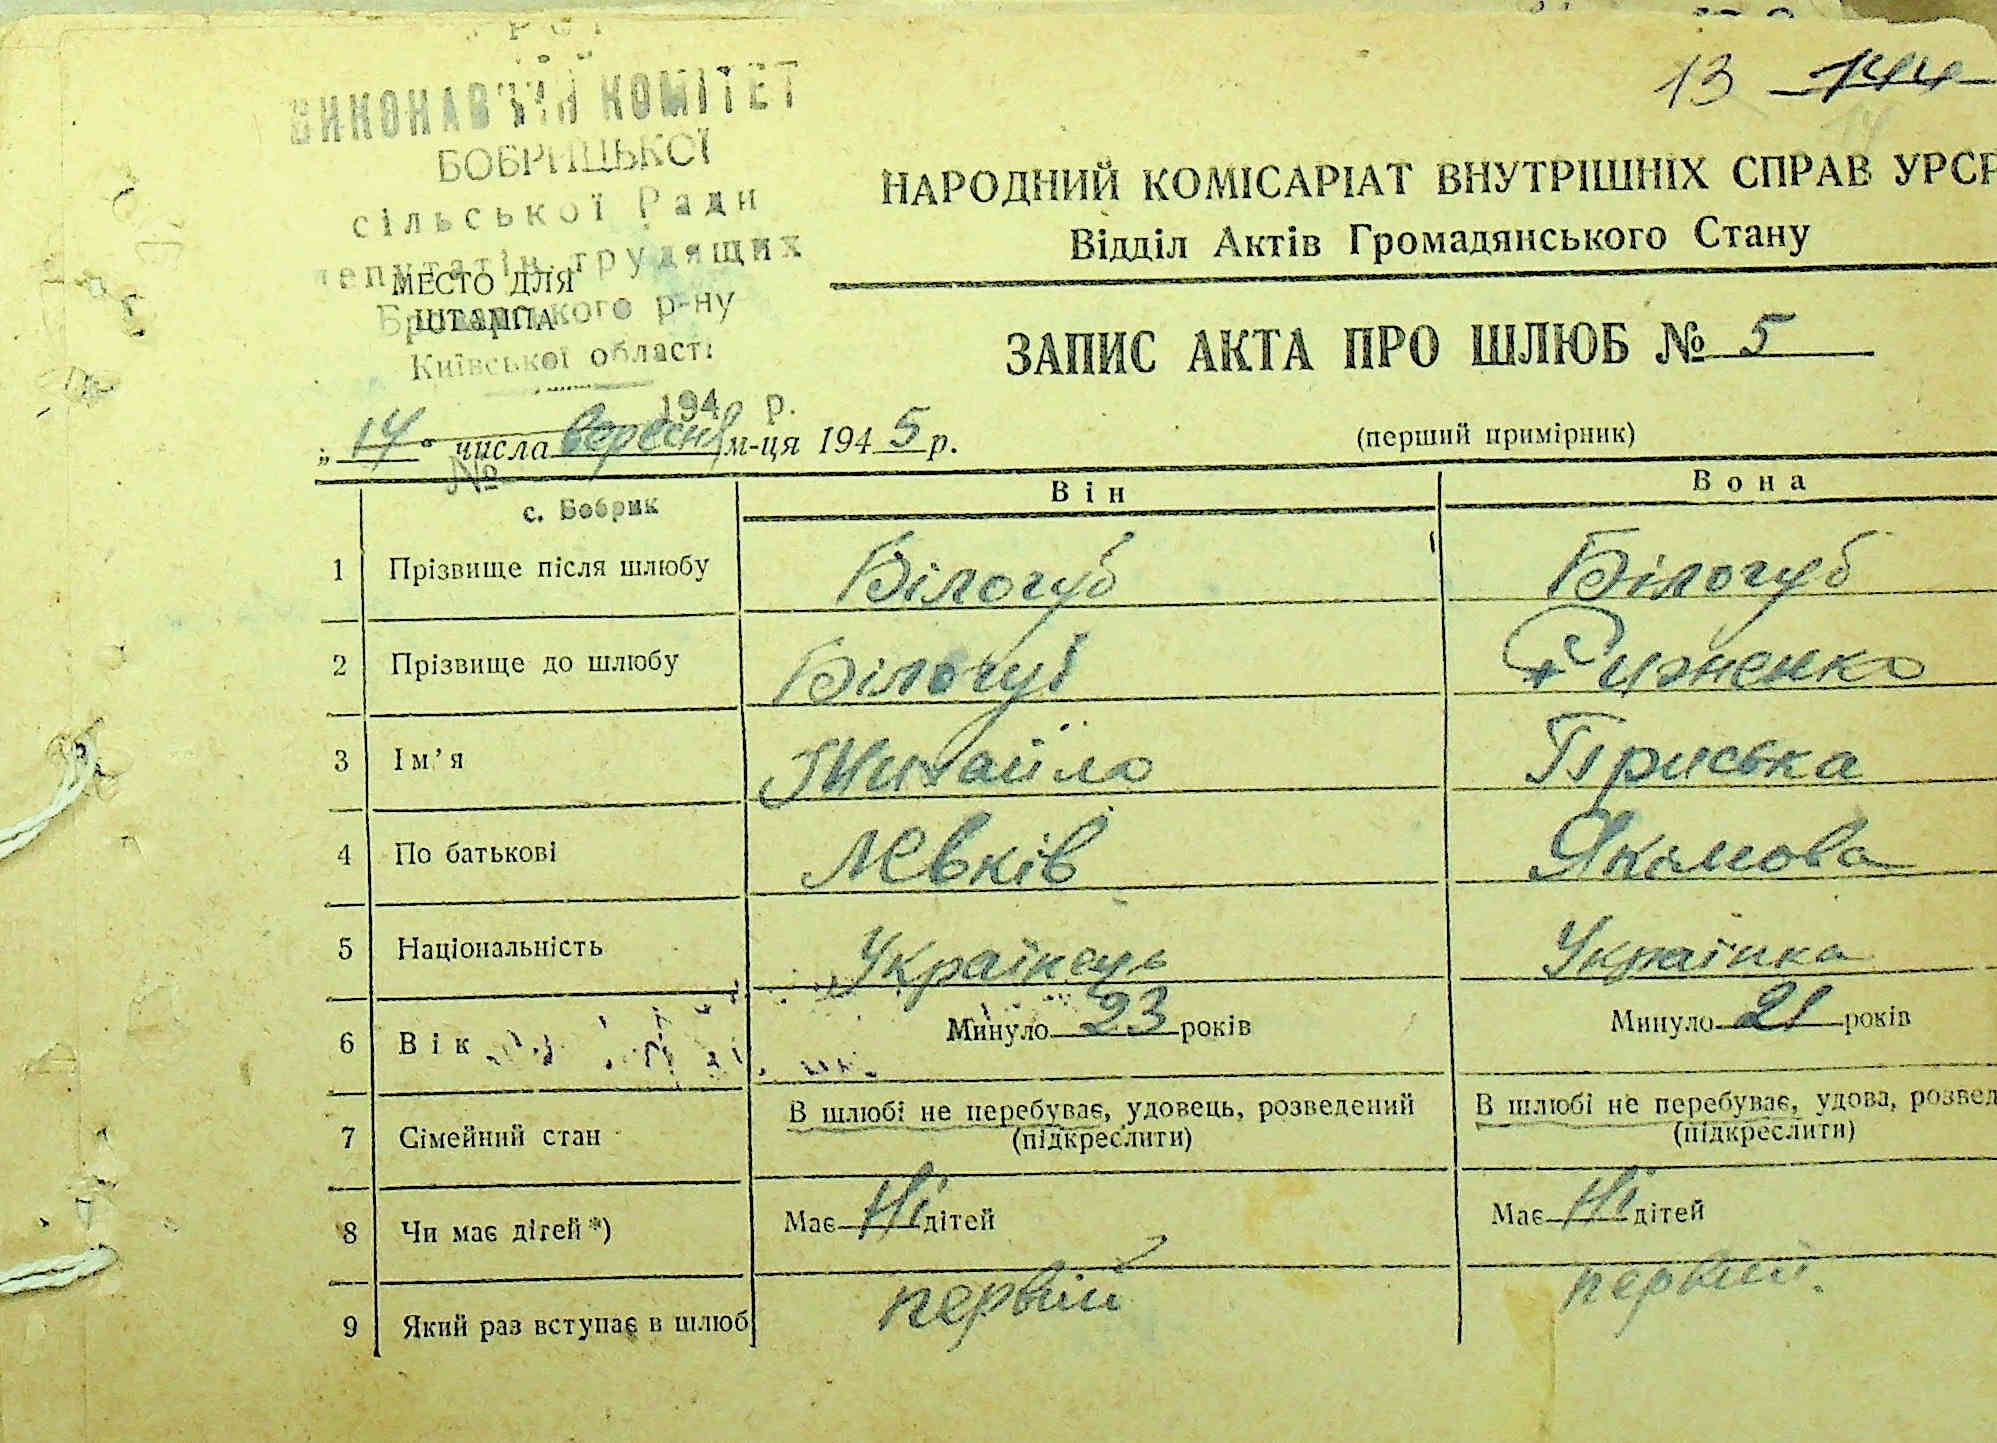 13 144
ВИКОНАВЧИЙ КОМІТЕТ
БОБРИЦЬКОЇ
сільської Ради
депутатів трудящих
МЕСТО ДЛЯ
ШТАМПА
Броварського р-ну
Київської області
194 р.
№
с. Бобрик
НАРОДНИЙ КОМІСАРІАТ ВНУТРІШНІХ СПРАВ УРСР
Відділ Актів Громадянського Стану
ЗАПИС АКТА ПРО ШЛЮБ № 5
„14“ числа вересня м-ця 1945 р.
(перший примірник)
Він Вона
1 Прізвище після шлюбу Білогуб Білогуб
2 Прізвище до шлюбу Білогуб Риженко
3 Ім’я Михайло Пріська
4 По батькові Левків Якимова
5 Національність Українець Українка
6 Вік Минуло 23 років Минуло 21 років
7 Сімейний стан В шлюбі не перебуває, удовець, розведений В шлюбі не перебуває, удова, розвед
(підкреслити) (підкреслити)
8 Чи має дітей*) Має Ні дітей Має Ні дітей
9 Який раз вступає в шлюб первий первий.